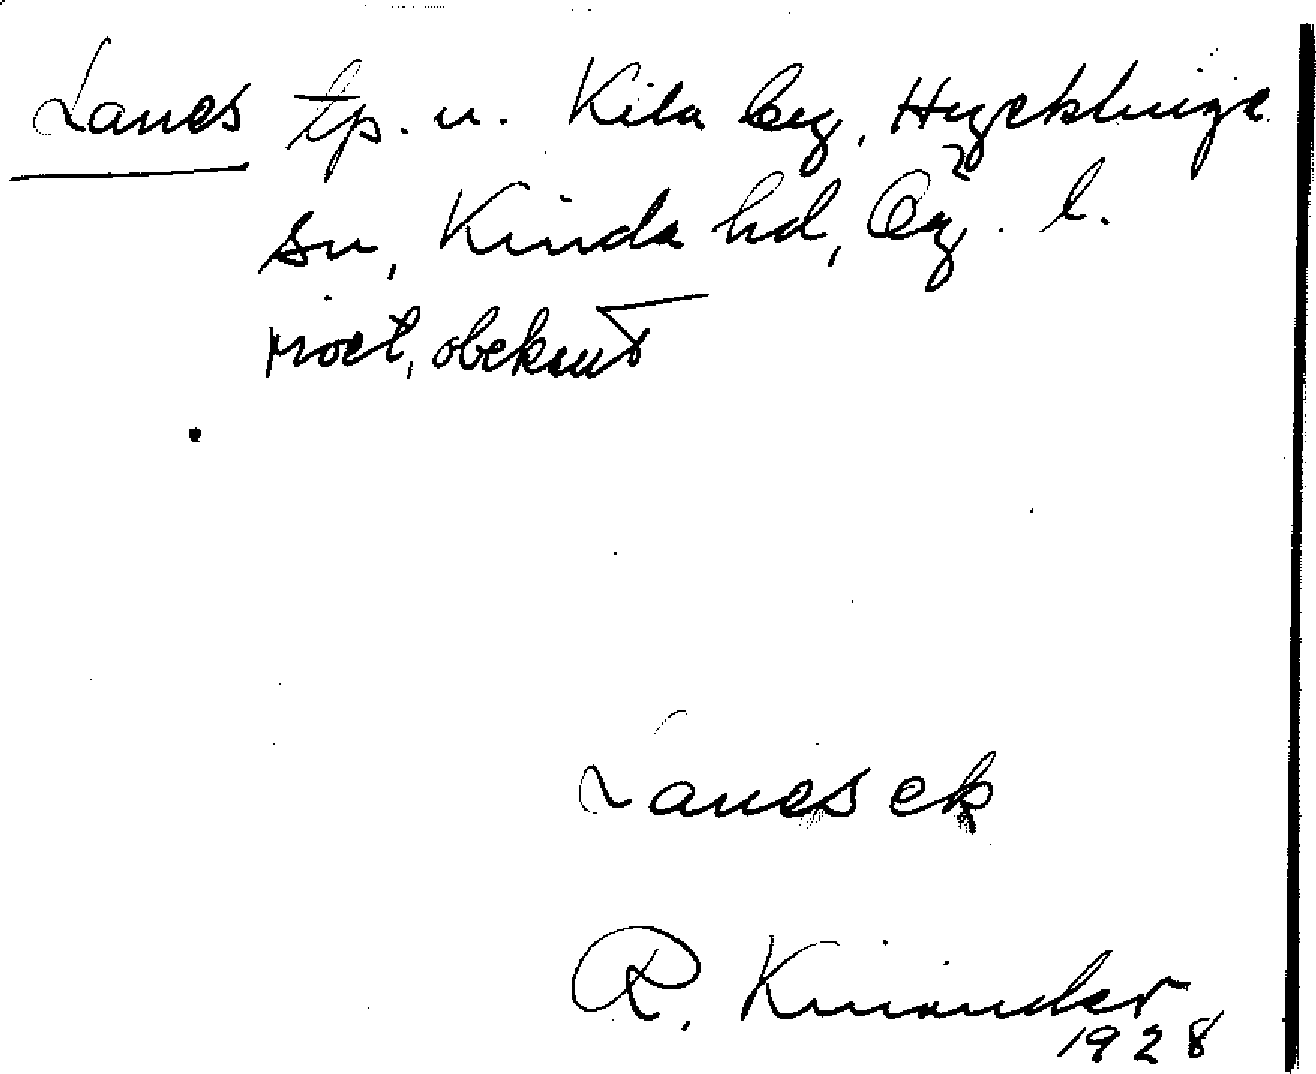 Lanes tp. u. Kila by, Hycklinge
sn, Kinda hd, Ög. l.
obekant
Lanesek
R. Kinander
1928